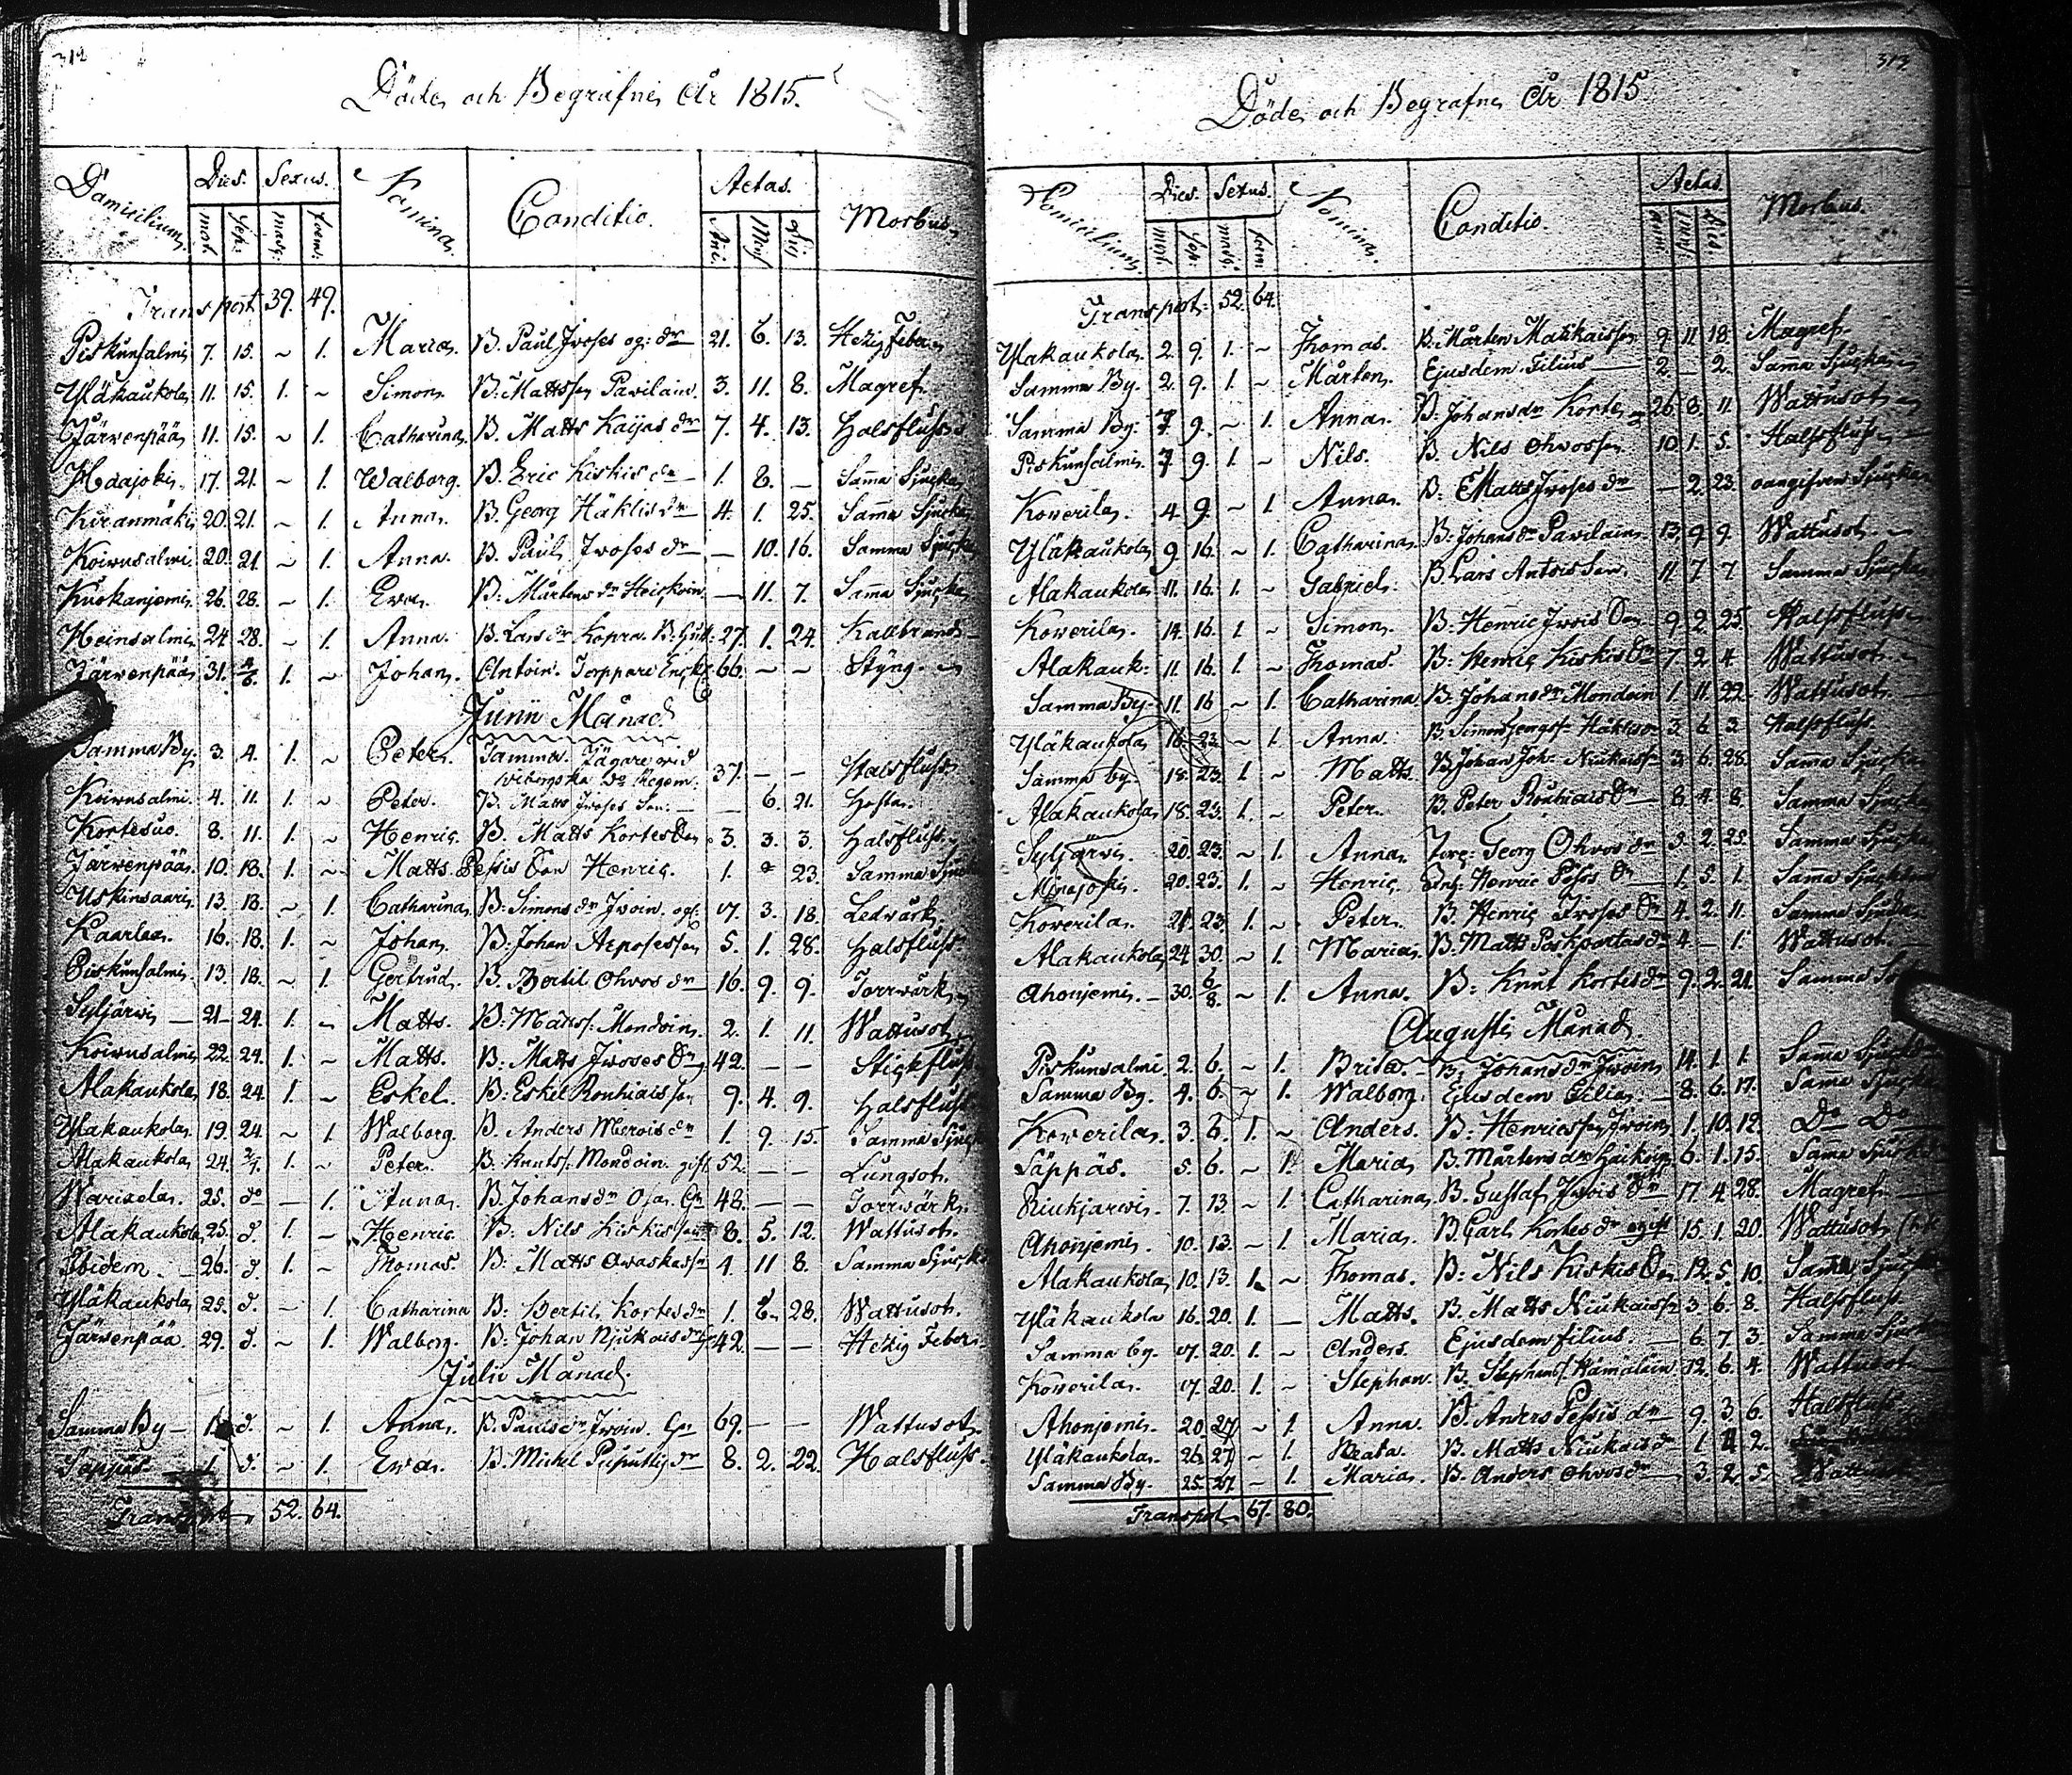 312
Döde och Begrafne År 1815.
Domicilium. Dies. Sexus. Nomina. Conditio. Aetas. Morbus.
mort. sep. masc. foem. Ani. Mens. Dies
Transport 39. 49.
Piskunsalmi 7. 15. ~ 1. Maria. B. Paul Iwoses og: dr 21. 6. 13. Hetzig Feber
Yläkaukola 11. 15. 1. ~ Simon. B: Mattssn Pavilain. 3. 11. 8. Magref.
Järwenpää 11. 15. ~ 1. Catharina. B. Matts Kaijas dr 7. 4. 13. Halsfluss
17. 21. ~ 1. Walborg. B. Eric Kiskis dr 1. 8. – Samma Sjucka
Kuranmäki 20. 21. ~ 1. Anna. B. Georg Häklis dr 4. 1. 25. Samma Sjucka
Koirusalmi 20. 21. ~ 1. Anna. B. Pauls Iwoses dr – 10. 16. Samma Sjucka
Kuokanjemi 26. 28. ~ 1. Eva. B: Mårtens dr – 11. 7. Samma Sjucka
Heinsalmi 24. 28. ~ 1. Anna. B. Lars dr Kopra. 27. 1. 24. Kallbrand
Järwenpää 31. 4/6. 1. ~ Johan. Antoin. Torppare 66. – – Styng.
Junii Månad
Samma By. 3. 4. 1. ~ Peter. Samma. Jägare wid
Wiborgska Regem. 37. – – Halsfluss
Koirusalmi 4. 11. 1. ~ Peter. B. Matts Iwoses Son – 6. 21. Hosta.
Kortesuo. 8. 11. 1. ~ Henric. B. Matts Kortes Son 3. 3. 3. Halsfluss
Järwenpää. 10. 18. 1. ~ Matts. Pessis Son Henric. 1. 23. Samma Sjuck
Uskinsaari. 13. 18. ~ 1. Catharina. B: Simons dr Iwoin. 17. 3. 18. Ledvärk.
Kaarlea. 16. 18. 1. ~ Johan. B: Johan 5. 1. 28. Halsfluss
Piskunsalmi. 13. 18. ~ 1. Gertrud. B. Bertil Ohvos dr 16. 9. 9. Torrwärk
Syljärwi – 21 24. 1. ~ Matts. B: Mattss. Mondoin. 2. 1. 11. Wattusot
Koirusalmi 22. 24. 1. ~ Matts. B: Matts Iwoses Sn 42. – – Stickfluss
Alakaukola 18. 24. 1. ~ Eskel. B: Eskel Ronhiais son 9. 4. 9. Halsfluss
Yläkaukola. 19. 24. ~ 1. Walborg. B. Anders Merois dr 1. 9. 15. Samma Sjuck
Alakaukola 24. 2/7. 1. ~ Peter. B. Knutss. Mondoin. gift 52. – – Lungsot.
25. do – 1. Anna. B. Johans dr Ojas 48. – – Torrwärk.
Alakaukola 25. d. 1. – Henric. B: Nils Kiskis 8. 5. 12. Wattusot.
Ibidem. 26. d. 1. ~ Thomas. B: Matts Awaskas 4. 11 8. Samma Sjuck
Yläkaukola 25. d. – 1. Catharina B: Bertils Kortes dr 1. 28. Wattusot.
Järwenpää. 29. d. ~ 1. Walborg. B: Johan Njukais dr 42. – – Hetzig Feber
Julii Månad.
Samma By – 1. d. ~ 1. Anna. B. Pauls dr Iwoin. 69. – – Wattusot
1. d. ~ 1. Eva. B. Michel Puputtis dr 8. 2. 22. Halsfluss.
Transport 52. 64.
313
Döde och Begrafne År 1815
Domicilium. Dies. Sexus. Nomina. Conditio. Aetas. Morbus.
mort. sep. masc. foem. anni. Mens. Dies.
Transport: 52. 64.
Yläkaukola. 2. 9. 1. ~ Thomas. B. Mårten Matikaisson 9. 11. 18. Magref.
Samma By. 2. 9. 1. ~ Mårten. Ejusdem Filius – 2. – 2. Samma Sjucka
Samma By. 7. 9. ~ 1. Anna. B. Johans dr Korte 26. 8. 11. Wattusot
Piskunsalmi. 7. 9. 1. ~ Nils. B. Nils Ohvosson 10. 1. 5. Halsfluss
Kowerila. 4. 9. ~ 1. Anna. B: Matts Iwoses dr – 2. 23. oangifven Sjucka
Yläkaukola 9 16. ~ 1. Catharina. B: Johans dr Pavilain 13. 9. 9. Wattusot
Alakaukola 11. 16. 1. ~ Gabriel. B. Lars Antois Son. 11. 7. 7. Samma Sjucka
Kowerila. 14. 16. 1. ~ Simon. B: Henric Iwois Son 9. 2. 25. Halsfluss
Alakauk: 11. 16. 1. ~ Thomas. B: Henric Kiskis Sn 7. 2. 4. Wattusot
Samma By. 11. 16 ~ 1. Catharina B: Johans dr Mondoin 1. 11. 22. Wattusot
Yläkaukola 16. 23. ~ 1. Anna. B Simon 3. 6. 3. Halsfluss
Samma by. 18. 23. 1. ~ Matts. B. Johan Joh: Niukaiss 3. 6. 28. Samma Sjucka
Alakaukola 18. 23. 1. ~ Peter. B. Peter Ronhiais Sn 8. 4. 8. Samma Sjucka
Syljärwi. 20. 23. ~ 1. Anna. Torp: Georg Ohvos dr 3. 2. 25. Samma Sjucka
20. 23. 1. ~ Henric. Enk: Henric Posos Sn 1. 5. 1. Samma Sjuckdom
Kowerila. 21. 23. 1. ~ Peter. B. Henric Iwoses Sn 4. 2. 11. Samma Sjucka
Alakaukola 24. 30. ~ 1. Maria. B: Matts Paskpartas dr 4. – 1. Wattusot.
Ahonjemi. – 30. 6/8. ~ 1. Anna. B: Knut Kortes dr 9. 2. 21. Samma
Augusti Månad.
Piskunsalmi. 2. 6. ~ 1. Brita. B: Johans dr Iwoin 14. 1. 1. Samma Sjuckd
Samma By. 4. 6. ~ 1. Walborg. Ejusdem Filia. – 8. 6. 17. Samma Sjucka
Kowerila. 3. 6. 1. ~ Anders. B: Henricsson Iwoin 1. 10. 12. Do Do
Säppäs. 5. 6. ~ 1. Maria. B. Mårtens dr 6. 1. 15. Samma Sjuckd
Riukjärwi. 7. 13. ~ 1. Catharina. B. Gustaf Iwois dr 17. 4. 28. Magref.
Ahonjemi. 10. 13. ~ 1. Maria. B. Carl Kortes dr ogift 15. 1. 20. Wattusot
Alakaukola 10. 13. 1. ~ Thomas. B: Nils Kiskis Son 12. 5. 10. Samma Sjuck
Yläkaukola 16. 20. 1. – Matts. B. Matts Niukaiss 3. 6. 8. Halsfluss
Samma by. 17. 20. 1. ~ Anders. Ejusdem filius. – 6. 7. 3. Samma Sjucka
Kowerila. 17. 20. 1. ~ Stephan. B. Stephans. Hämäläin 12. 6. 4. Wattusot
Ahonjemi. 20. 27 ~ 1 Anna. B. Anders Pessis dr 9. 3. 6. Halsfluss
Yläkaukola. 26. 27 – 1. Beata. B. Matts Niukais dr 1. 11. 2.
Samma By. 25. 27. – 1. Maria. B. Anders Ohvos dr 3. 2. 5. Wattusot
Transport. 67. 80.